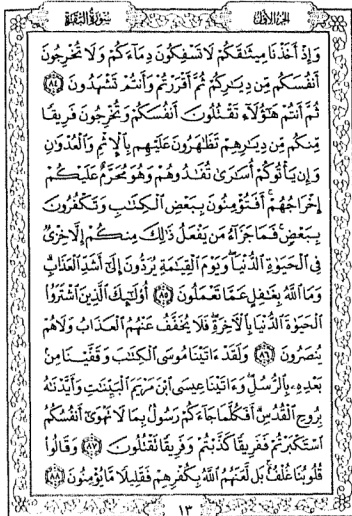 الجزء الأول
سورة البقرة
وَإِذْ أَخَذْنَا مِيثَٰقَكُمْ لَا تَسْفِكُونَ دِمَآءَكُمْ وَلَا تُخْرِجُونَ
أَنفُسَكُم مِّن دِيَٰرِكُمْ ثُمَّ أَقْرَرْتُمْ وَأَنتُمْ تَشْهَدُونَ ٨٤
ثُمَّ أَنتُمْ هَٰٓؤُلَآءِ تَقْتُلُونَ أَنفُسَكُمْ وَتُخْرِجُونَ فَرِيقًا
مِّنكُم مِّن دِيَٰرِهِمْ تَظَٰهَرُونَ عَلَيْهِم بِٱلْإِثْمِ وَٱلْعُدْوَٰنِ
وَإِن يَأْتُوكُمْ أُسَٰرَىٰ تُفَٰدُوهُمْ وَهُوَ مُحَرَّمٌ عَلَيْكُمْ
إِخْرَاجُهُمْ أَفَتُؤْمِنُونَ بِبَعْضِ ٱلْكِتَٰبِ وَتَكْفُرُونَ
بِبَعْضٍ فَمَا جَزَآءُ مَن يَفْعَلُ ذَٰلِكَ مِنكُمْ إِلَّا خِزْىٌ
فِى ٱلْحَيَوٰةِ ٱلدُّنْيَا وَيَوْمَ ٱلْقِيَٰمَةِ يُرَدُّونَ إِلَىٰٓ أَشَدِّ ٱلْعَذَابِ
وَمَا ٱللَّهُ بِغَٰفِلٍ عَمَّا تَعْمَلُونَ ٨٥ أُو۟لَٰٓئِكَ ٱلَّذِينَ ٱشْتَرَوُا۟
ٱلْحَيَوٰةَ ٱلدُّنْيَا بِٱلْءَاخِرَةِ فَلَا يُخَفَّفُ عَنْهُمُ ٱلْعَذَابُ وَلَا هُمْ
يُنصَرُونَ ٨٦ وَلَقَدْ ءَاتَيْنَا مُوسَى ٱلْكِتَٰبَ وَقَفَّيْنَا مِنۢ
بَعْدِهِۦ بِٱلرُّسُلِ وَءَاتَيْنَا عِيسَى ٱبْنَ مَرْيَمَ ٱلْبَيِّنَٰتِ وَأَيَّدْنَٰهُ
بِرُوحِ ٱلْقُدُسِ أَفَكُلَّمَا جَآءَكُمْ رَسُولٌۢ بِمَا لَا تَهْوَىٰٓ أَنفُسُكُمُ
ٱسْتَكْبَرْتُمْ فَفَرِيقًا كَذَّبْتُمْ وَفَرِيقًا تَقْتُلُونَ ٨٧ وَقَالُوا۟
قُلُوبُنَا غُلْفٌۢ بَل لَّعَنَهُمُ ٱللَّهُ بِكُفْرِهِمْ فَقَلِيلًا مَّا يُؤْمِنُونَ ٨٨
١٣